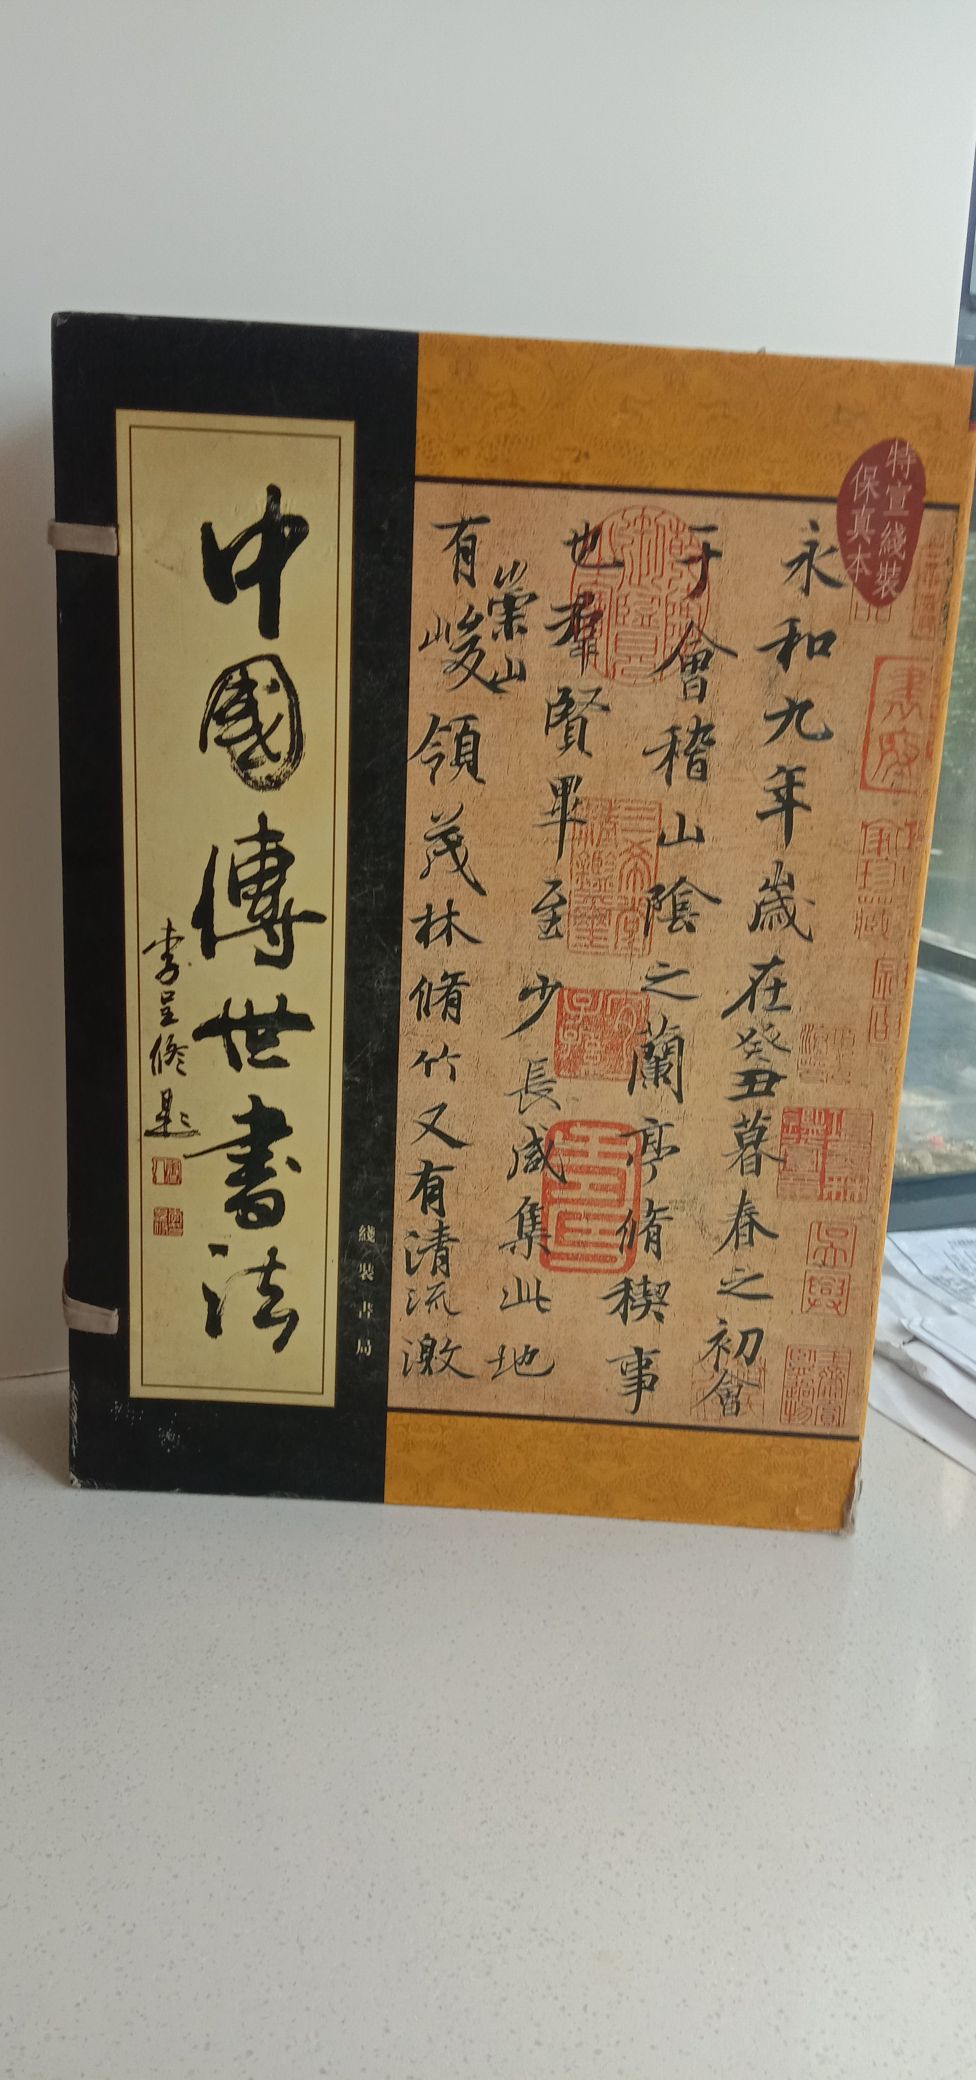 中國傳世書法
李呈修題
綫裝書局
特宣綫裝
保真本
永和九年歲在癸丑暮春之初會
于會稽山陰之蘭亭脩稧事
也群賢畢至少長咸集此地
有崇山峻領茂林脩竹又有清流激